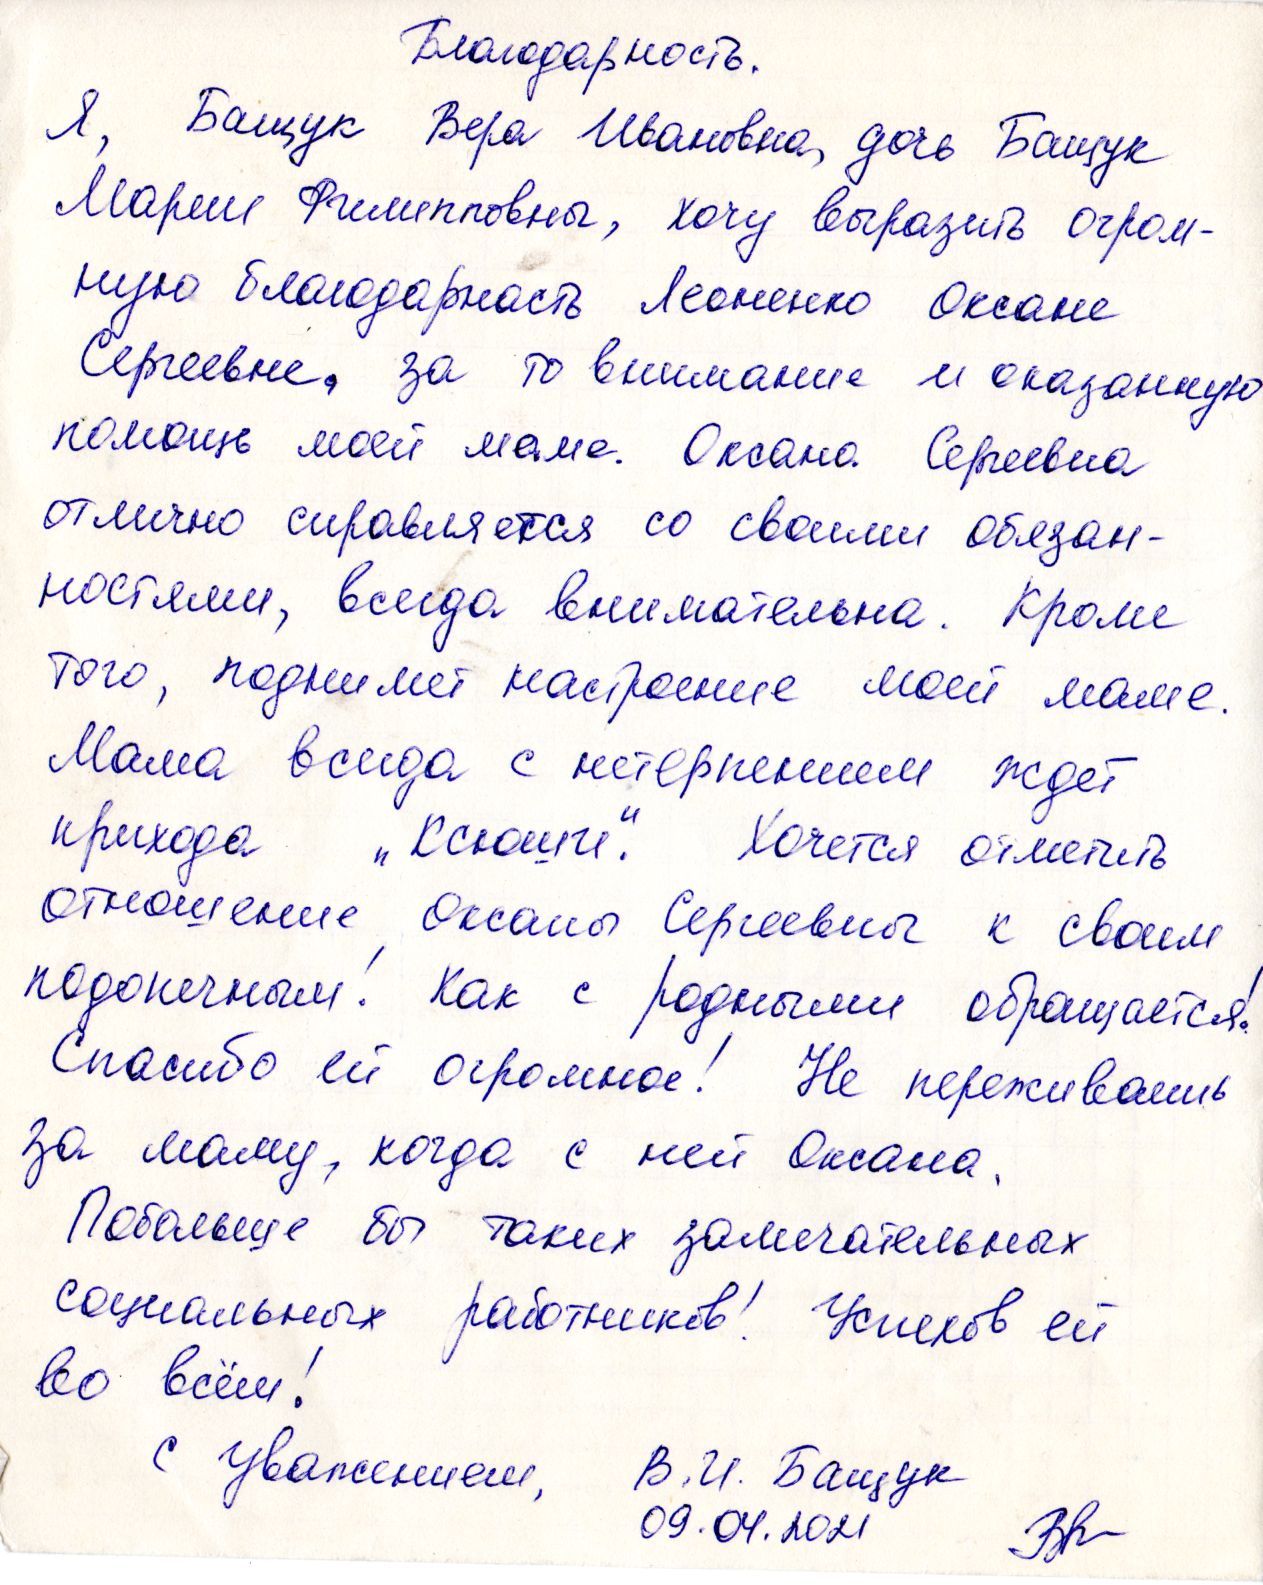 Благодарность.
Я, Бащук Вера Ивановна, дочь Бащук
Марии Филипповны, хочу выразить огром-
ную благодарность Леоненко Оксане
Сергеевне, за то внимание и оказанную
помощь моей маме. Оксана Сергеевна
отлично справляется со своими обязан-
ностями, всегда внимательна. Кроме
того, поднимет настроение моей маме.
Мама всегда с нетерпением ждет
прихода „Ксюши". Хочется отметить
отношение Оксаны Сергеевны к своим
подопечным! Как с родными обращается!
Спасибо ей огромное! Не переживаешь
за маму, когда с ней Оксана.
Побольше бы таких замечательных
социальных работников! Успехов ей
во всём!
С уважением, В.И. Бащук
09.04.2021